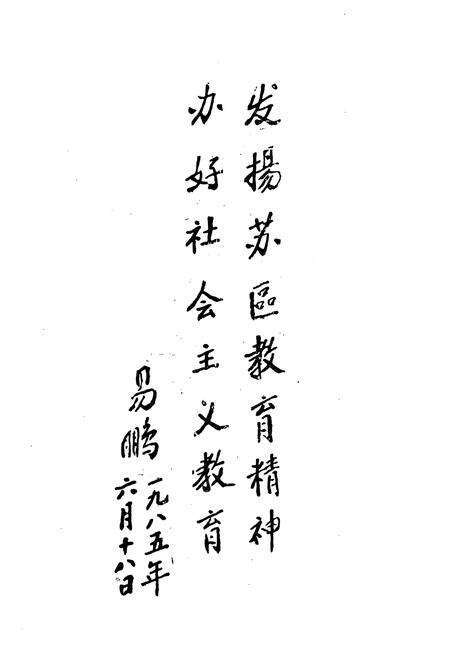 发揚苏區教育精神
办好社会主义教育
易鹏
一九八五年
六月十八日